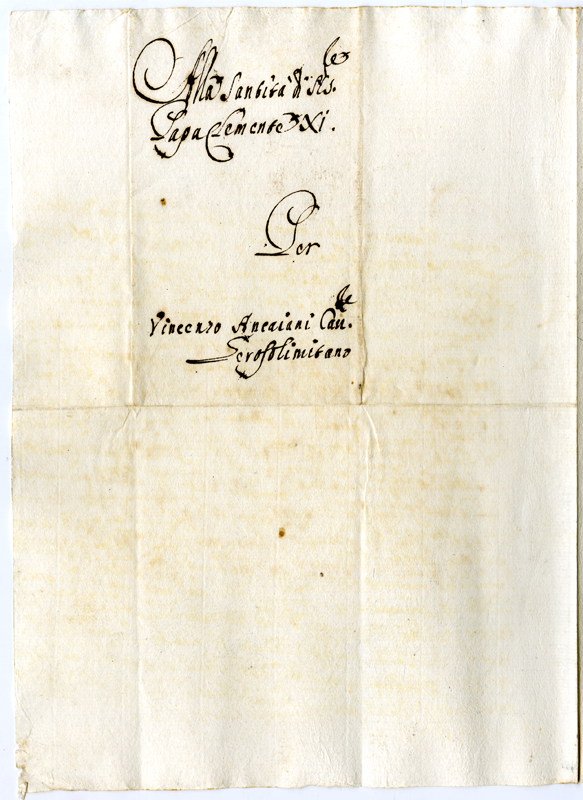 Alla Santità di N.S.re
Papa Clemente XI.
Per
Vincenzo Ancaiani Cau.re
Gerosolimitano